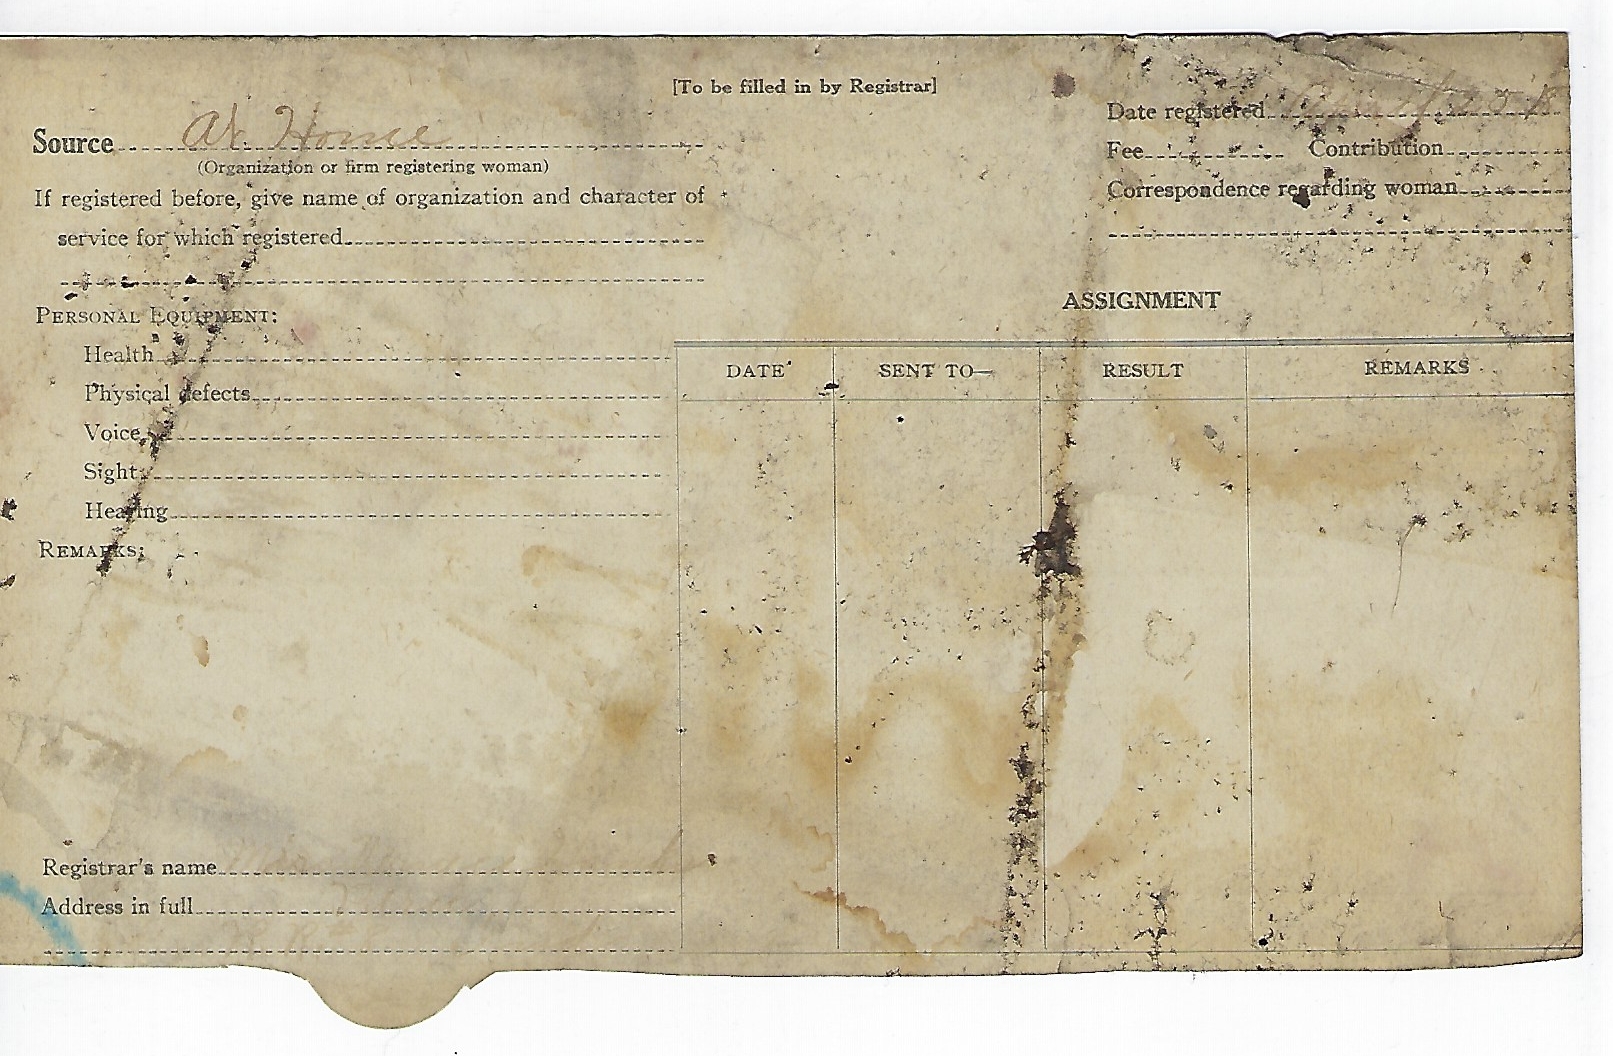 [To be filled in by Registrar]
Source At Home
(Organization or firm registering woman)
If registered before, give name of organization and character of
service for which registered
PERSONAL EQUIPMENT:
Health
Physical defects
Voice
Sight
Hearing
REMARKS:
Registrar's name
Address in full
Date registered
Fee Contribution
Correspondence regarding woman
ASSIGNMENT
DATE SENT TO— RESULT REMARKS